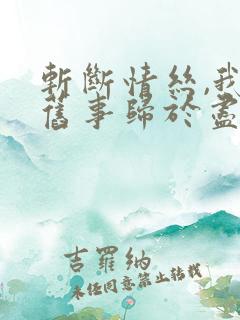 斬斷情絲,我
舊事歸於盡
吉羅納
未經同意禁止轉載